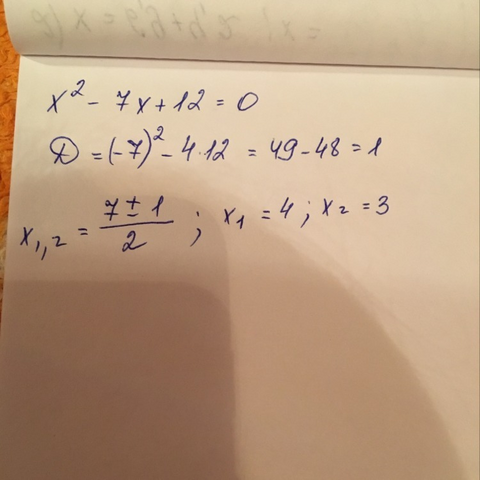 x² - 7x + 12 = 0
D = (-7)² - 4·12 = 49 - 48 = 1
x₁,₂ = (7 ± 1)/2 ; x₁ = 4 ; x₂ = 3